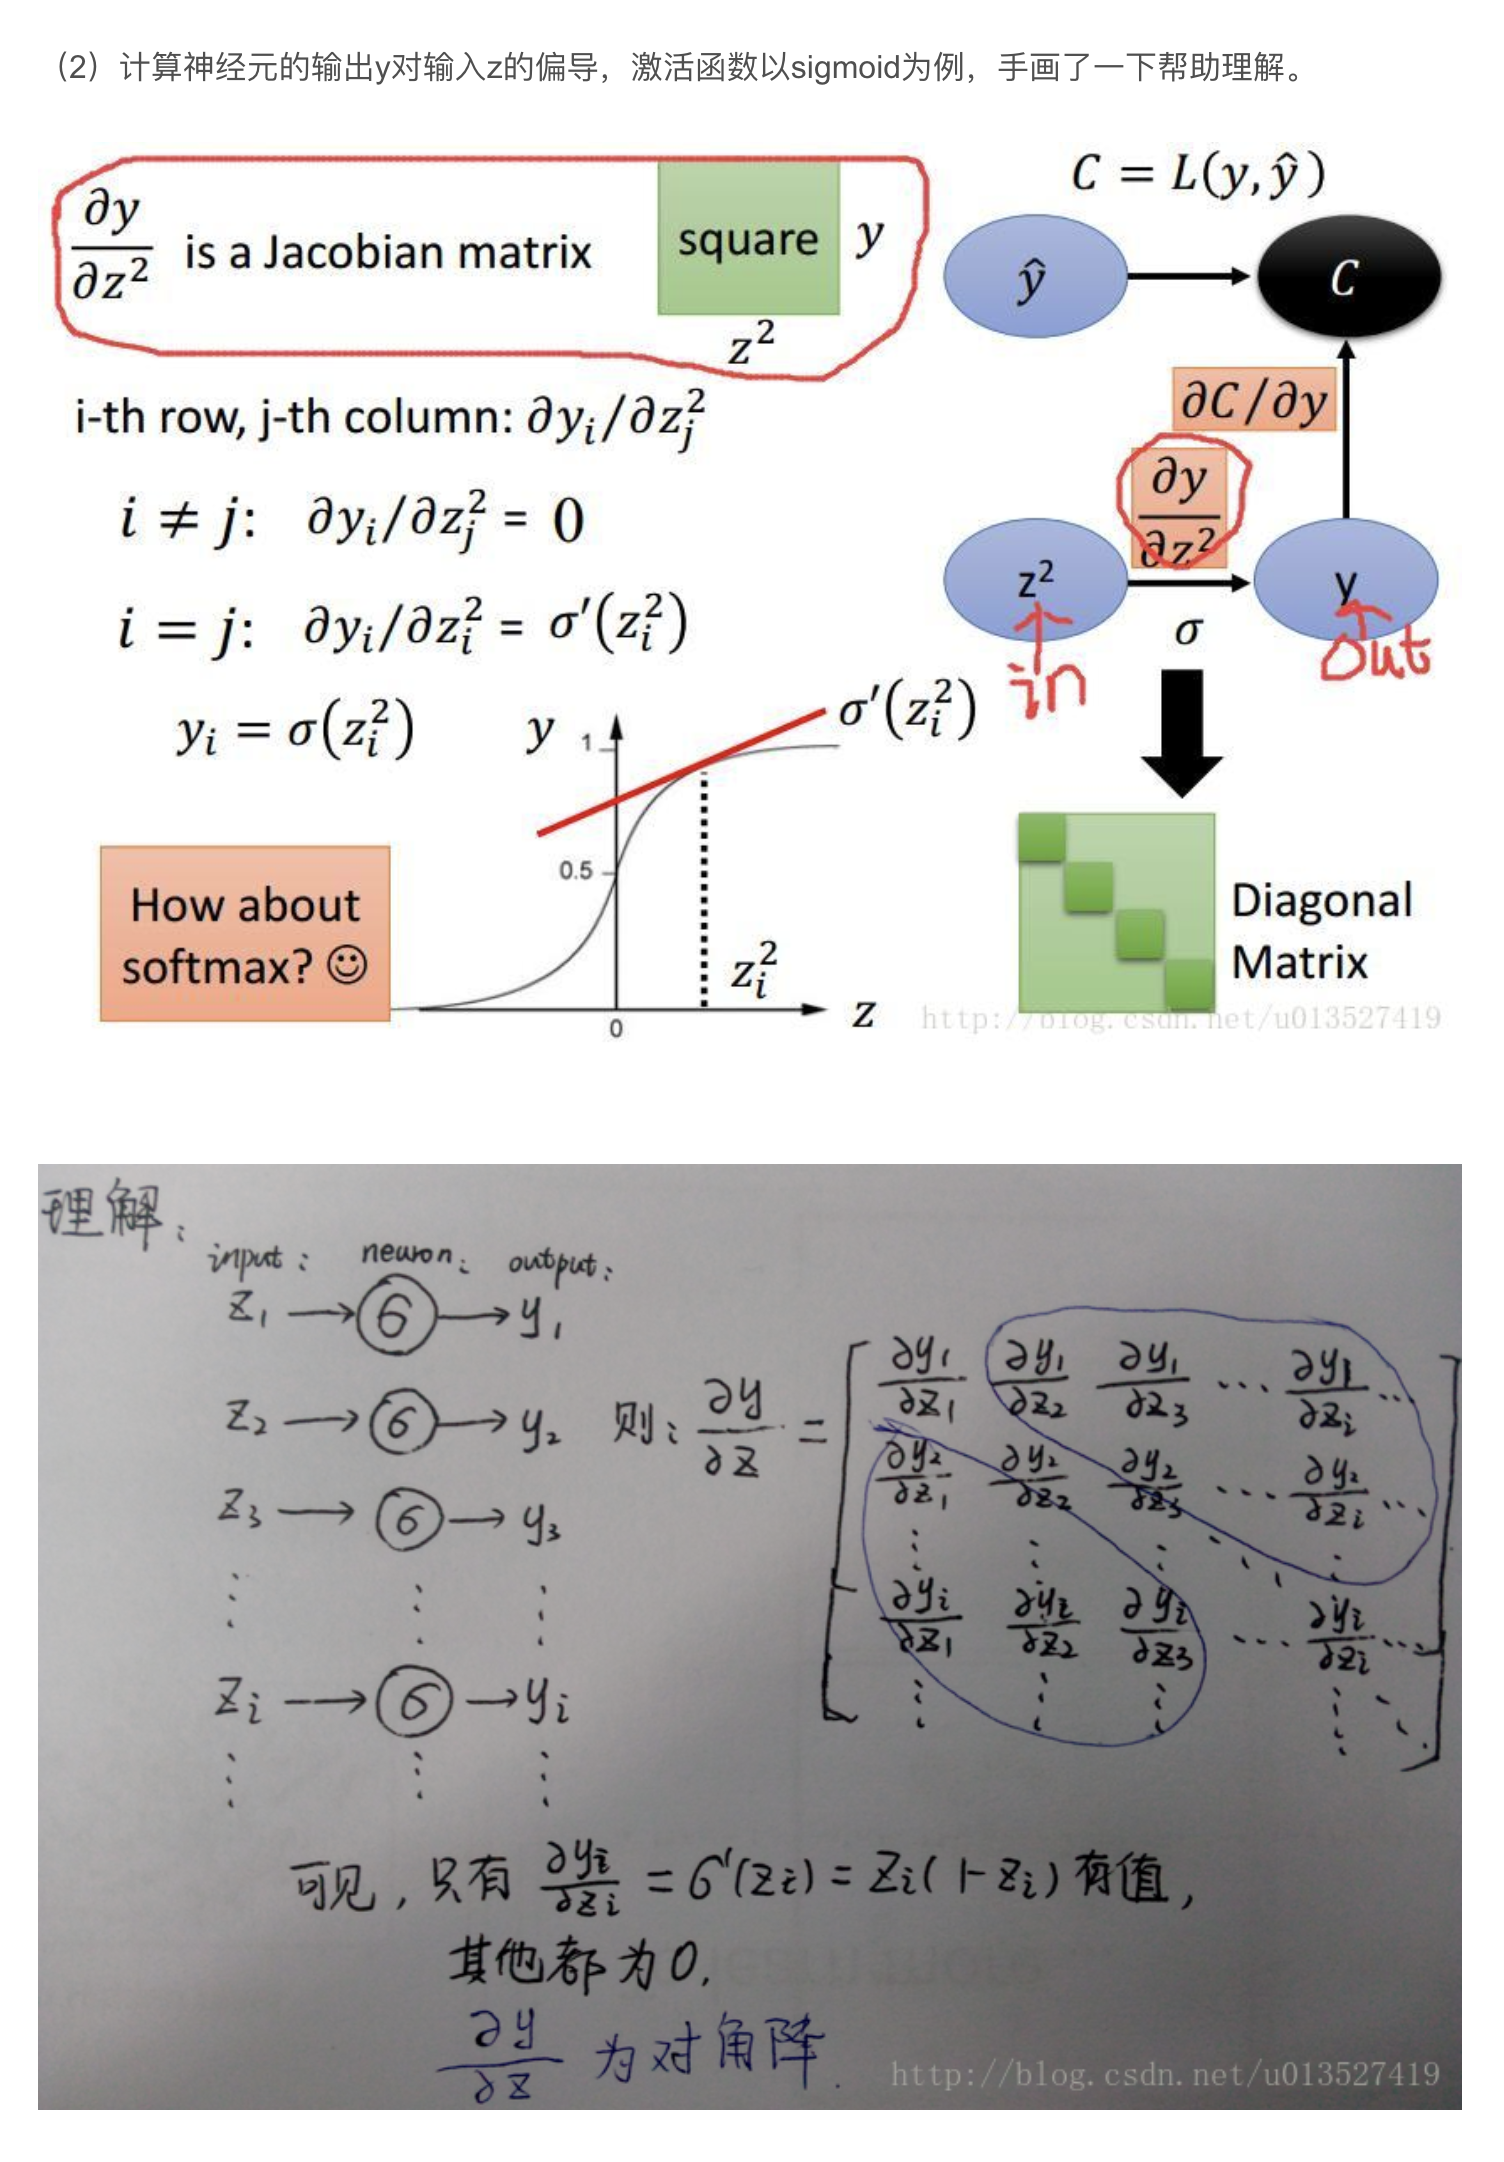 （2）计算神经元的输出y对输入z的偏导，激活函数以sigmoid为例，手画了一下帮助理解。
C = L(y, ŷ)
∂y/∂z² is a Jacobian matrix
square y
z²
ŷ
C
∂C/∂y
i-th row, j-th column: ∂yᵢ/∂zⱼ²
∂y/∂z²
i ≠ j: ∂yᵢ/∂zⱼ² = 0
z²
y
i = j: ∂yᵢ/∂zᵢ² = σ′(zᵢ²)
σ
in
out
yᵢ = σ(zᵢ²)
y
1
σ′(zᵢ²)
0.5
How about
softmax? ☺
zᵢ²
z
0
Diagonal
Matrix
http://blog.csdn.net/u013527419
理解：
input: neuron: output:
z₁ → σ → y₁
z₂ → σ → y₂
z₃ → σ → y₃
⋮ ⋮ ⋮
zᵢ → σ → yᵢ
⋮ ⋮ ⋮
则: ∂y/∂z =
∂y₁/∂z₁ ∂y₁/∂z₂ ∂y₁/∂z₃ … ∂y₁/∂zᵢ …
∂y₂/∂z₁ ∂y₂/∂z₂ ∂y₂/∂z₃ … ∂y₂/∂zᵢ …
⋮ ⋮ ⋮ ⋱ ⋮
∂yᵢ/∂z₁ ∂yᵢ/∂z₂ ∂yᵢ/∂z₃ … ∂yᵢ/∂zᵢ …
⋮ ⋮ ⋮ ⋮ ⋱
可见，只有 ∂yᵢ/∂zᵢ = σ′(zᵢ) = zᵢ(1-zᵢ) 有值，
其他都为0.
∂y/∂z 为对角阵.
http://blog.csdn.net/u013527419